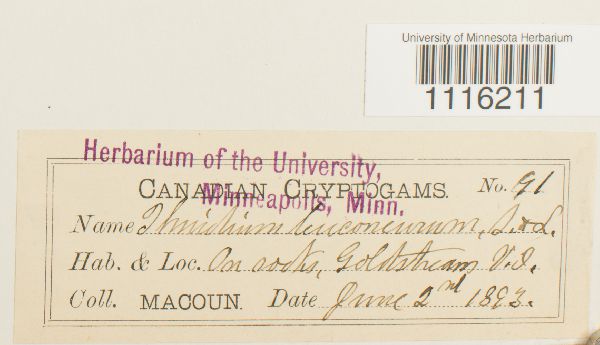 University of Minnesota Herbarium
1116211
Herbarium of the University,
Minneapolis, Minn.
CANADIAN CRYPTOGAMS. No. 91
Name Thuidium leuconeurum, S. & L.
Hab. & Loc. On rocks, Goldstream V.I.
Coll. MACOUN. Date June 2nd 1893.